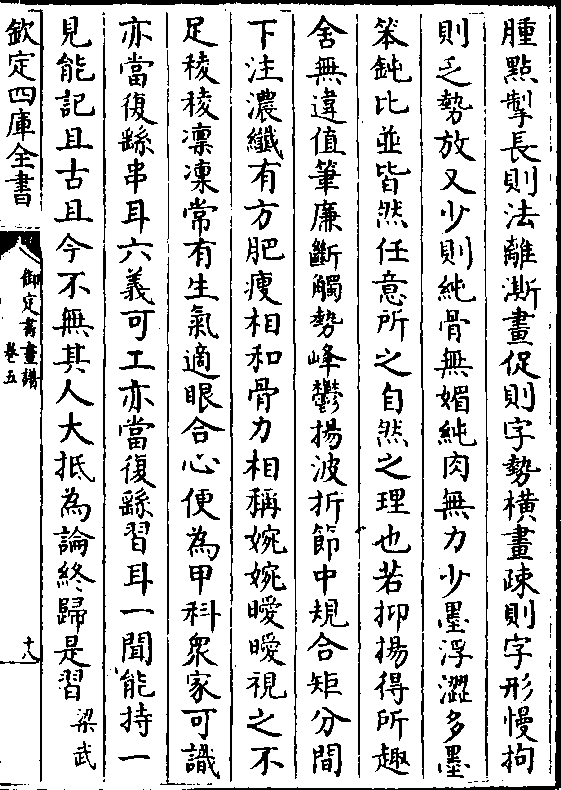 腫點掣長則法離澌畫促則字勢橫畫疎則字形慢拘
則乏勢放又少則純骨無媚純肉無力少墨浮澀多墨
笨鈍比並皆然任意所之自然之理也若抑揚得所趣
舍無違值筆廉斷觸勢峰鬱揚波折節中規合矩分間
下注濃纖有方肥瘦相和骨力相稱婉婉曖曖視之不
足稜稜凛凛常有生氣適眼合心便為甲科衆家可識
亦當復繇串耳六義可工亦當復繇習耳一聞能持一
見能記且古且今不無其人大抵為論終歸是習梁武
欽定四庫全書
御定書畫譜
卷五
十八